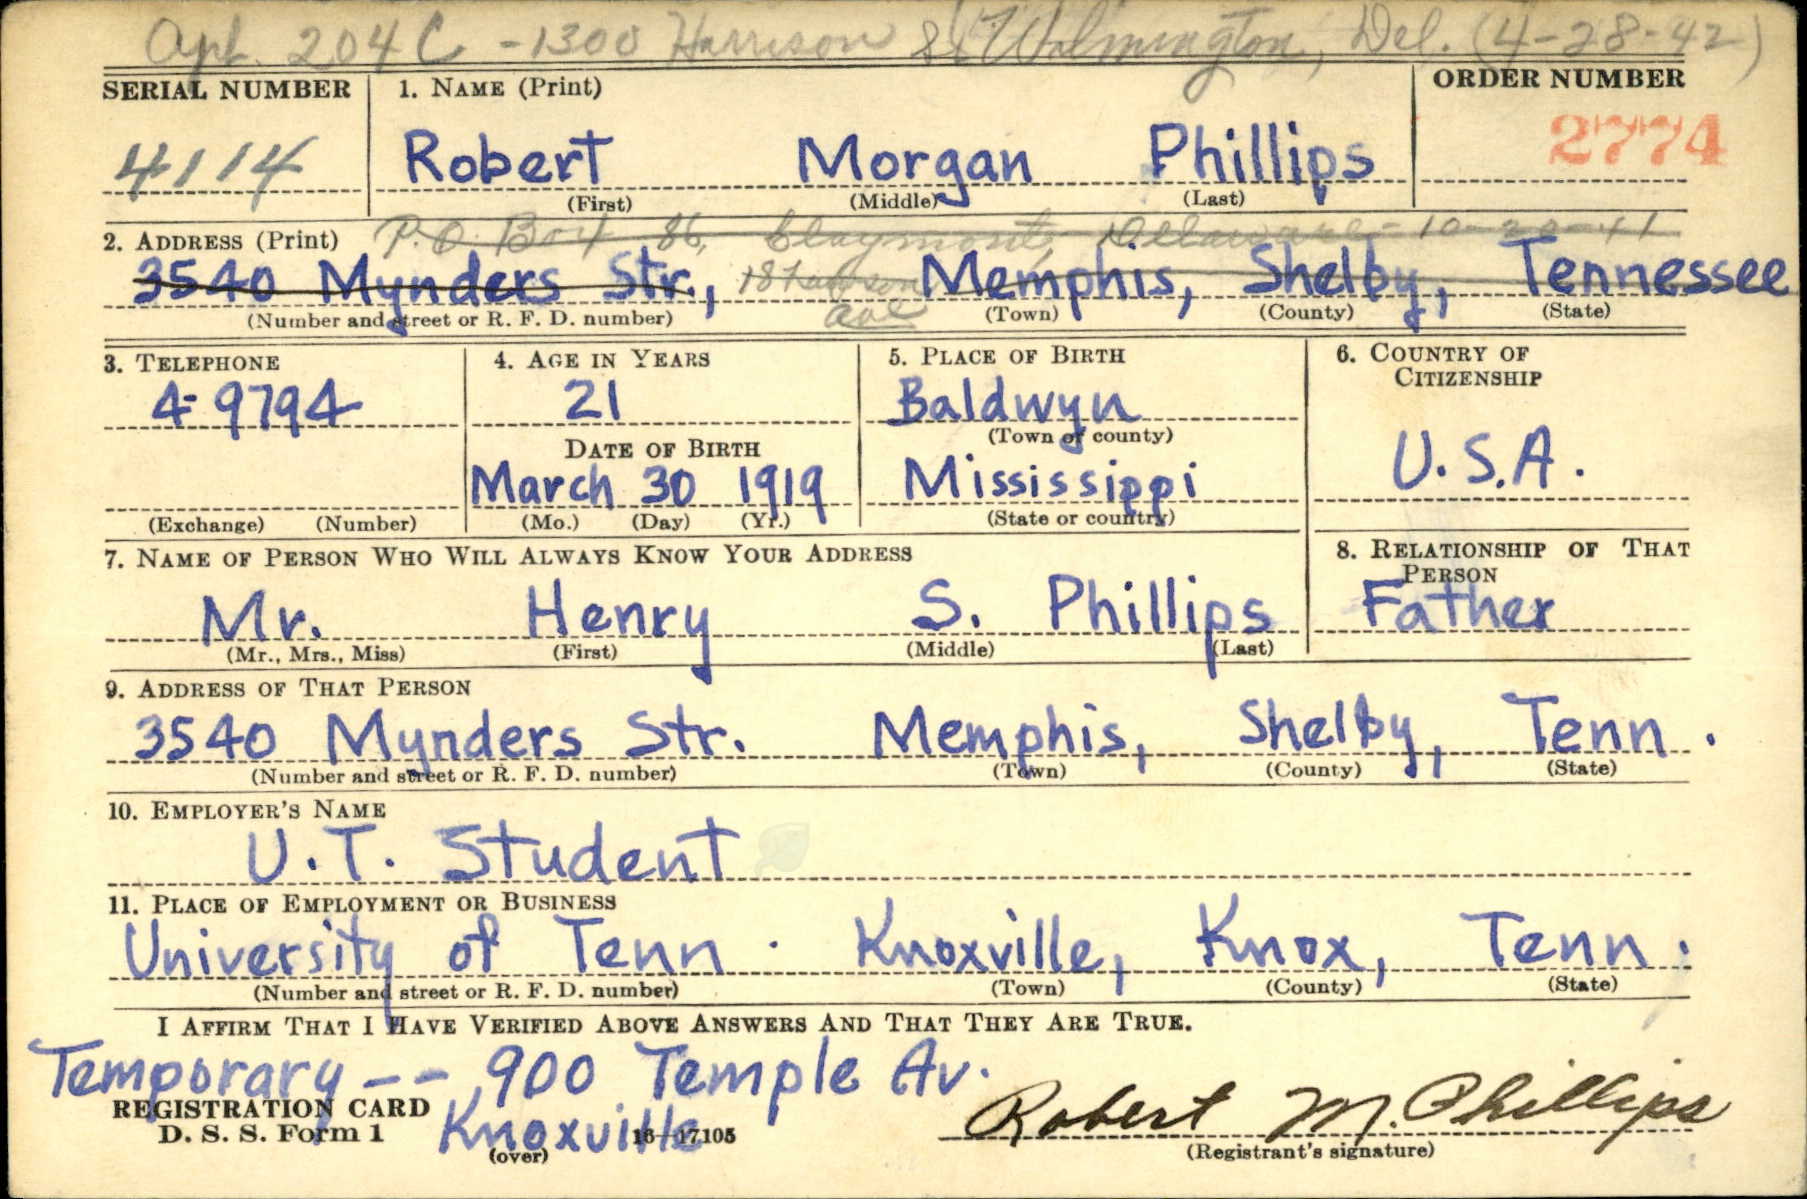 Apt. 204 C - 1300 Harrison St. Wilmington, Del. (4-28-42)
SERIAL NUMBER 1. NAME (Print) ORDER NUMBER
4114 Robert Morgan Phillips 2774
(First) (Middle) (Last)
2. ADDRESS (Print) P.O. Box 86, Claymont, Delaware - 10-20-41
3540 Mynders Str., 18 Ave Memphis, Shelby, Tennessee
(Number and street or R. F. D. number) (Town) (County) (State)
3. TELEPHONE 4. AGE IN YEARS 5. PLACE OF BIRTH 6. COUNTRY OF CITIZENSHIP
4-9794 21 Baldwyn
(Town or county)
DATE OF BIRTH U.S.A.
March 30 1919 Mississippi
(Exchange) (Number) (Mo.) (Day) (Yr.) (State or country)
7. NAME OF PERSON WHO WILL ALWAYS KNOW YOUR ADDRESS 8. RELATIONSHIP OF THAT PERSON
Mr. Henry S. Phillips Father
(Mr., Mrs., Miss) (First) (Middle) (Last)
9. ADDRESS OF THAT PERSON
3540 Mynders Str. Memphis, Shelby, Tenn.
(Number and street or R. F. D. number) (Town) (County) (State)
10. EMPLOYER'S NAME
U.T. Student
11. PLACE OF EMPLOYMENT OR BUSINESS
University of Tenn. Knoxville, Knox, Tenn.
(Number and street or R. F. D. number) (Town) (County) (State)
I AFFIRM THAT I HAVE VERIFIED ABOVE ANSWERS AND THAT THEY ARE TRUE.
Temporary -- 900 Temple Av.
Knoxville
REGISTRATION CARD
D. S. S. Form 1 16-17105
(over)
Robert M. Phillips
(Registrant's signature)